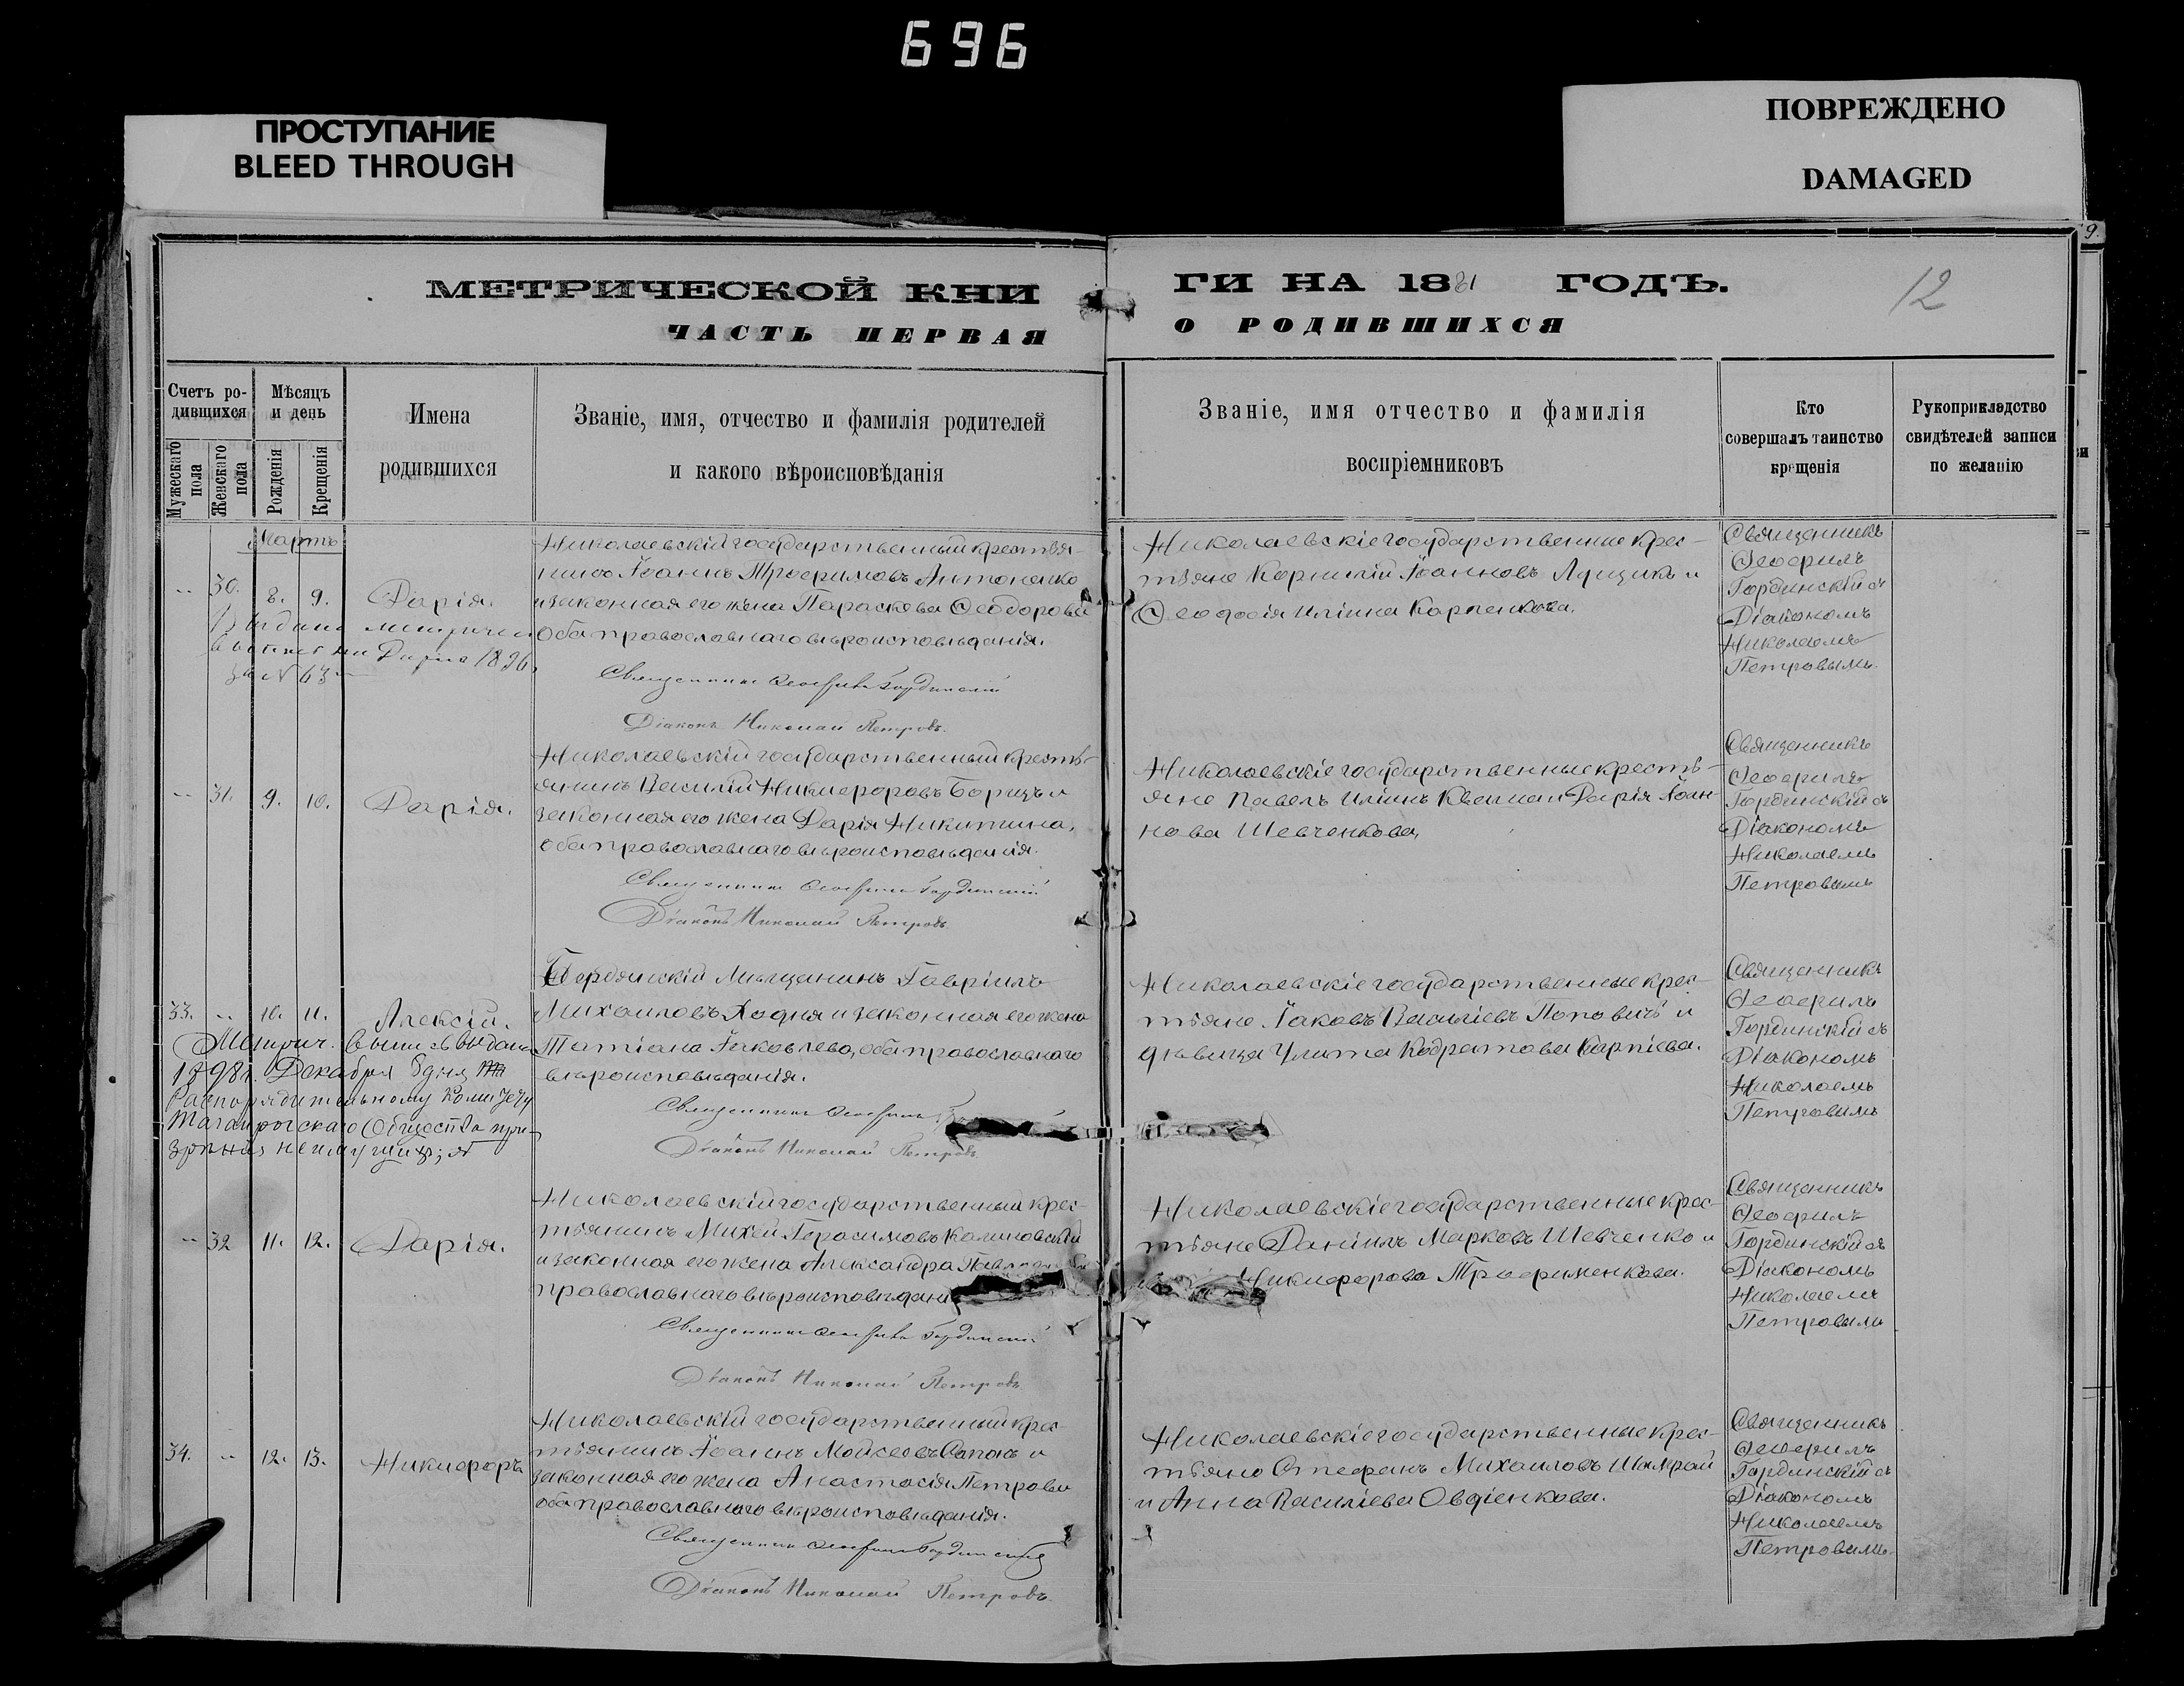 696
ПРОСТУПАНИЕ
BLEED THROUGH
ПОВРЕЖДЕНО
DAMAGED
9.
МЕТРИЧЕСКОЙ КНИ
ЧАСТЬ ПЕРВАЯ
ГИ НА 1881 ГОДЪ.
О РОДИВШИХСЯ
12
Счетъ ро-
дившихся
Мужескаго пола
Женскаго пола
Мѣсяцъ
и день
Рожденія
Крещенія
Имена
родившихся
Званіе, имя, отчество и фамилія родителей
и какого вѣроисповѣданія
Званіе, имя отчество и фамилія
воспріемниковъ
Кто
совершалъ таинство
крещенія
Рукоприкладство
свидѣтелей записи
по желанію
Мартъ
30. 8. 9. Дарія.
за N 63
Николаевскій государственный крестья-
нинъ Іоаннъ Трофимовъ Антоненко
и законная его жена Параскева Ѳеодорова
оба православнаго вѣроисповѣданія.
Священникъ Ѳеофилъ Гординскій
Діаконъ Николай Петровъ.
Николаевскіе государственные крес-
тьяне Корнилій Іоанновъ Лущикъ и
Ѳеодосія Иліина Карпенкова.
Священникъ
Ѳеофилъ
Гординскій съ
Діакономъ
Николаемъ
Петровымъ.
31. 9. 10. Дарія.
Николаевскій государственный кресть-
янинъ Василій Никифоровъ Борщъ и
законная его жена Дарія Никитина,
оба православнаго вѣроисповѣданія.
Священникъ Ѳеофилъ Гординскій
Діаконъ Николай Петровъ.
Николаевскіе государственные кресть-
яне Павелъ Иліинъ Квеша и Дарія Іоан
нова Шевченкова,
Священникъ
Ѳеофилъ
Гординскій съ
Діакономъ
Николаемъ
Петровымъ
33. 10. 11. Алексій.
Метрич. выпись выдана
1898 г. Декабря 8 дня
Распорядительному Комитету
Таганрогскаго Общества при-
зрѣнія неимущихъ;
Бердянскій Мѣщанинъ Гавріилъ
Михаиловъ Ходня и законная его жена
Татіана Іаковлева, оба православнаго
вѣроисповѣданія.
Священникъ Ѳеофилъ
Діаконъ Николай Петровъ
Николаевскіе государственные крес-
тьяне Іаковъ Василіевъ Поповичъ и
дѣвица Улита Кодратова Карпіева.
Священникъ
Ѳеофилъ
Гординскій съ
Діакономъ
Николаемъ
Петровымъ
32 11. 12. Дарія.
Николаевскій государственный крес-
тьянинъ Михей Герасимовъ Калиновскій
и законная его жена Александра
православнаго вѣроисповѣдані
Священникъ Ѳеофилъ Гординскій
Діаконъ Николай Петровъ
Николаевскіе государственные крес-
тьяне Даніилъ Марковъ Шевченко и
Никифорова Трофименкова.
Священникъ
Ѳеофилъ
Гординскій съ
Діакономъ
Николаемъ
Петровымъ
34. 12. 13. Никифоръ
Николаевскій государственный крес-
тьянинъ Іоаннъ Мойсеевъ Сапонъ и
законная его жена Анастасія Петрова
оба православнаго вѣроисповѣданія.
Священникъ Ѳеофилъ Гординскій
Діаконъ Николай Петровъ.
Николаевскіе государственные крес-
тьяне Стефанъ Михаиловъ Шамрай
и Анна Василіева Овдіенкова.
Священникъ
Ѳеофилъ
Гординскій съ
Діакономъ
Николаемъ
Петровымъ.